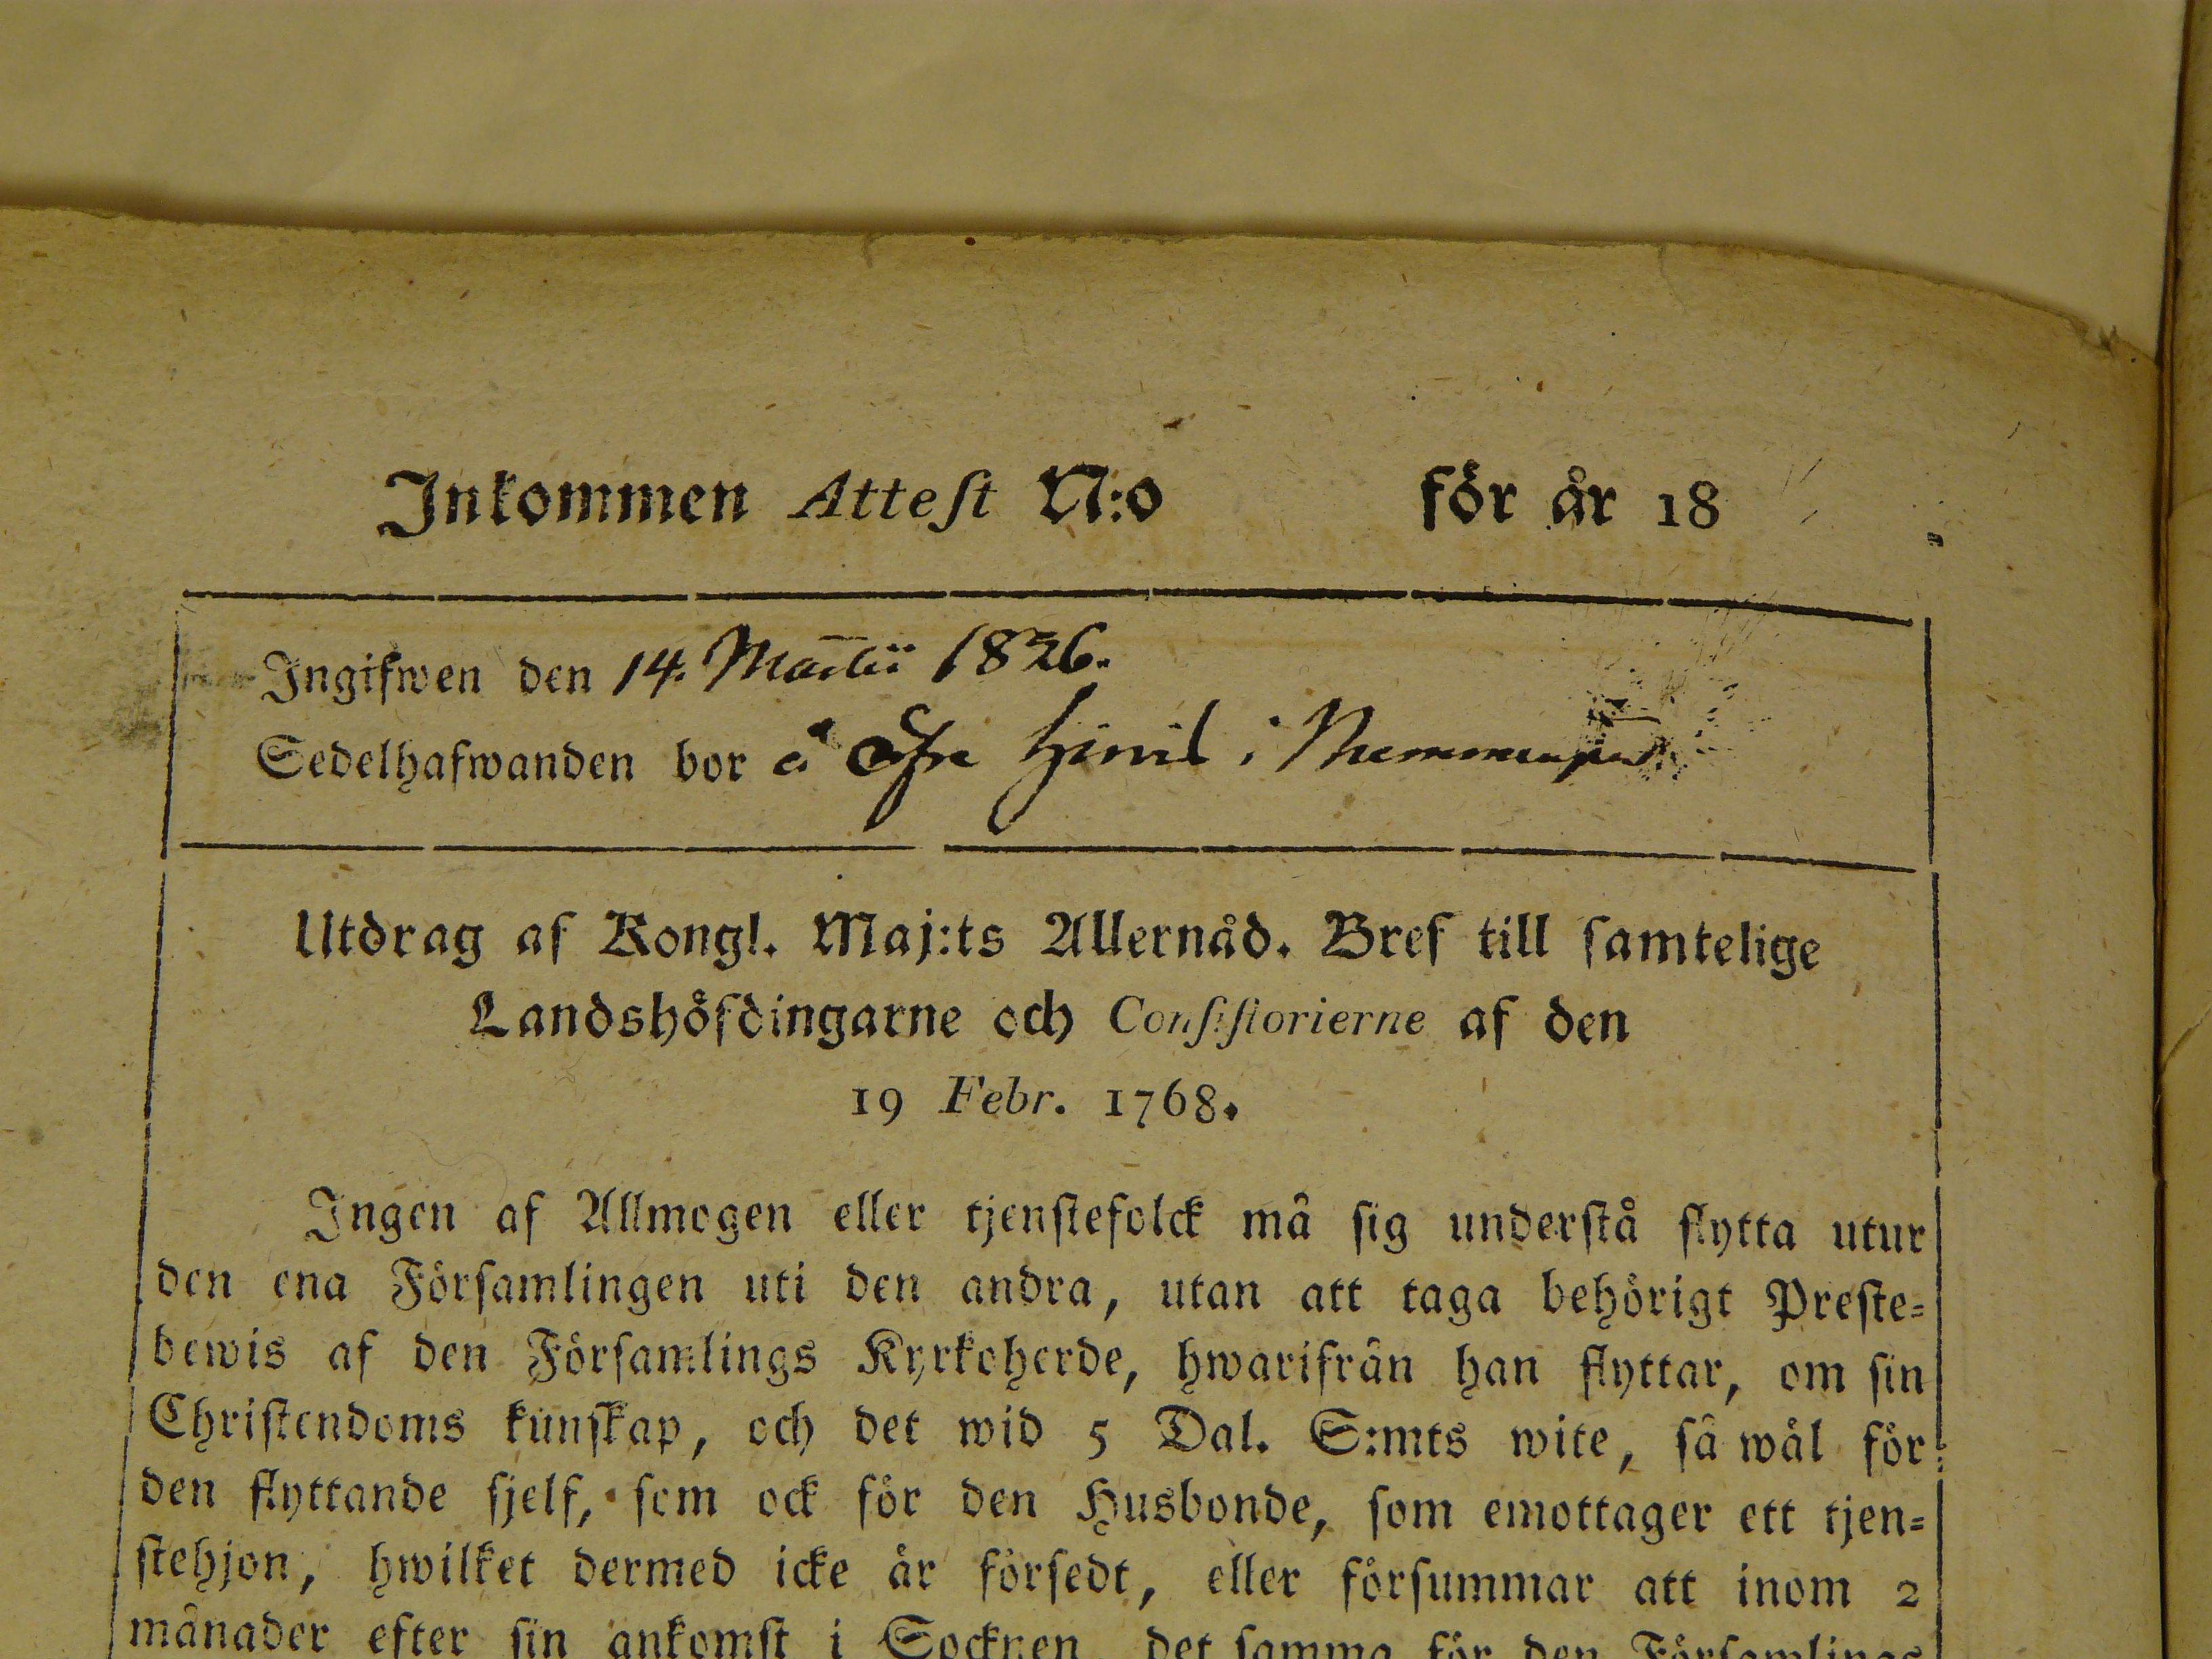 Inkommen Attest N:o för år 18
Ingifwen den 14. Martii 1826.
Sedelhafwanden bor å i
Utdrag af Kongl. Maj:ts Allernåd. Bref till samtelige
Landshöfdingarne och Consistorierne af den
19 Febr. 1768.
Ingen af Allmogen eller tjenstefolck må sig understå flytta utur
den ena Församlingen uti den andra, utan att taga behörigt Preste-
bewis af den Församlings Kyrkoherde, hwarifrån han flyttar, om sin
Christendoms kunskap, och det wid 5 Dal. S:mts wite, så wäl för
den flyttande sjelf, som ock för den Husbonde, som emottager ett tjen-
stehjon, hwilket dermed icke är försedt, eller försummar att inom 2
månader efter sin ankomst i Socknen det samma för den Församlings